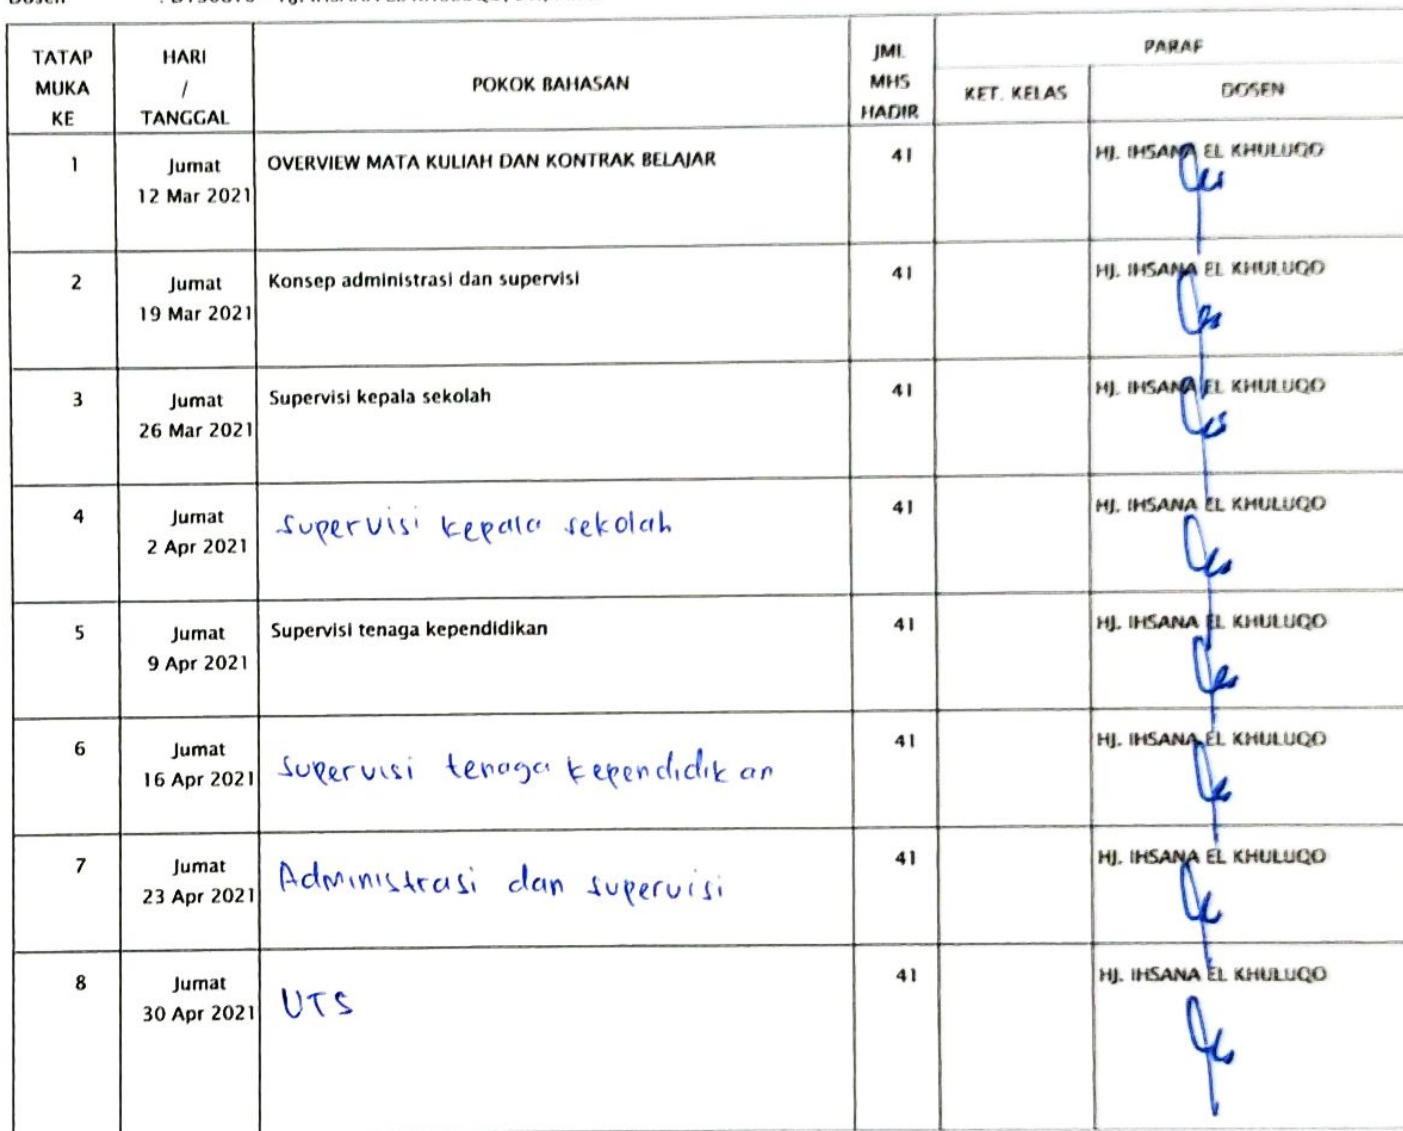 TATAP MUKA KE | HARI / TANGGAL | POKOK BAHASAN | JML MHS HADIR | PARAF
KET. KELAS | DOSEN
1 | Jumat 12 Mar 2021 | OVERVIEW MATA KULIAH DAN KONTRAK BELAJAR | 41 | HJ. IHSANA EL KHULUQO
2 | Jumat 19 Mar 2021 | Konsep administrasi dan supervisi | 41 | HJ. IHSANA EL KHULUQO
3 | Jumat 26 Mar 2021 | Supervisi kepala sekolah | 41 | HJ. IHSANA EL KHULUQO
4 | Jumat 2 Apr 2021 | supervisi kepala sekolah | 41 | HJ. IHSANA EL KHULUQO
5 | Jumat 9 Apr 2021 | Supervisi tenaga kependidikan | 41 | HJ. IHSANA EL KHULUQO
6 | Jumat 16 Apr 2021 | Supervisi tenaga kependidikan | 41 | HJ. IHSANA EL KHULUQO
7 | Jumat 23 Apr 2021 | Administrasi dan supervisi | 41 | HJ. IHSANA EL KHULUQO
8 | Jumat 30 Apr 2021 | UTS | 41 | HJ. IHSANA EL KHULUQO